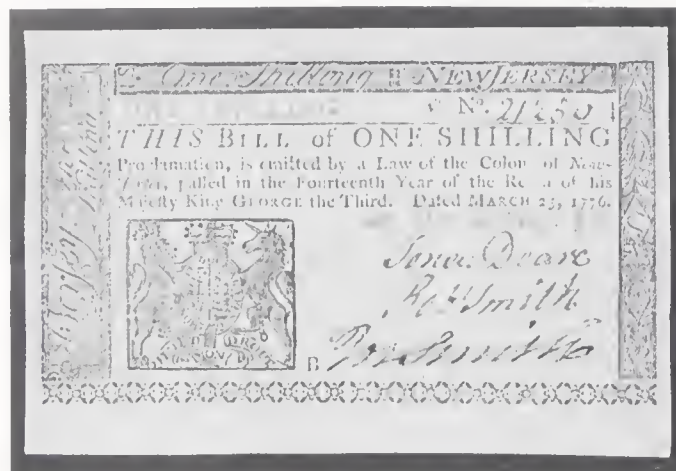 One Shilling NEW JERSEY
Nº. 21250
THIS BILL of ONE SHILLING
Proclamation, is emitted by a Law of the Colony of New-
Jersey, passed in the Fourteenth Year of the Reign of his
Majesty King GEORGE the Third. Dated MARCH 25, 1776.
Jonon Deare
Robt Smith
B
Jersey